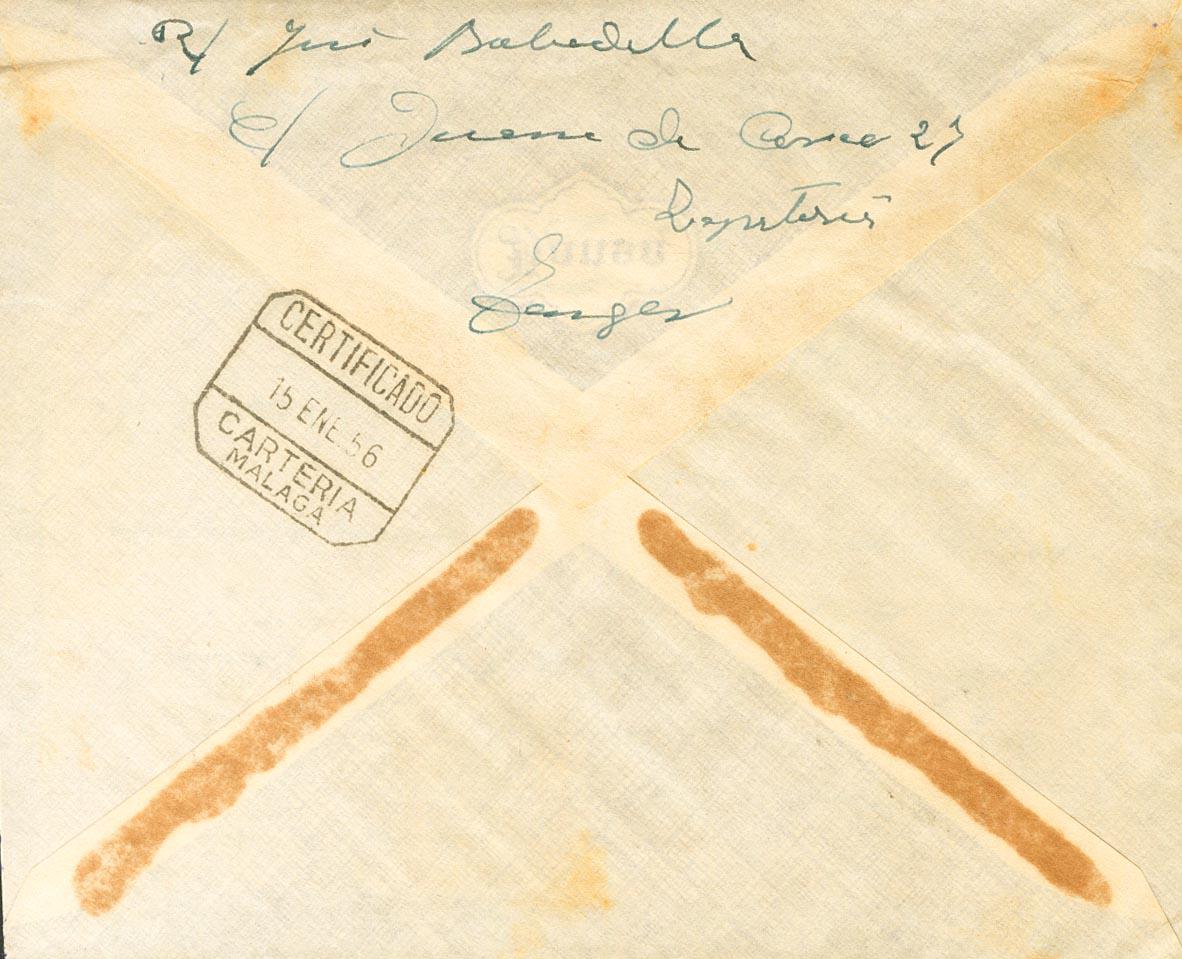 R/ José Bobedilla
C/ Juana de Arco 27
Zapatería
Tanger
CERTIFICADO
15 ENE. 56
CARTERIA
MALAGA